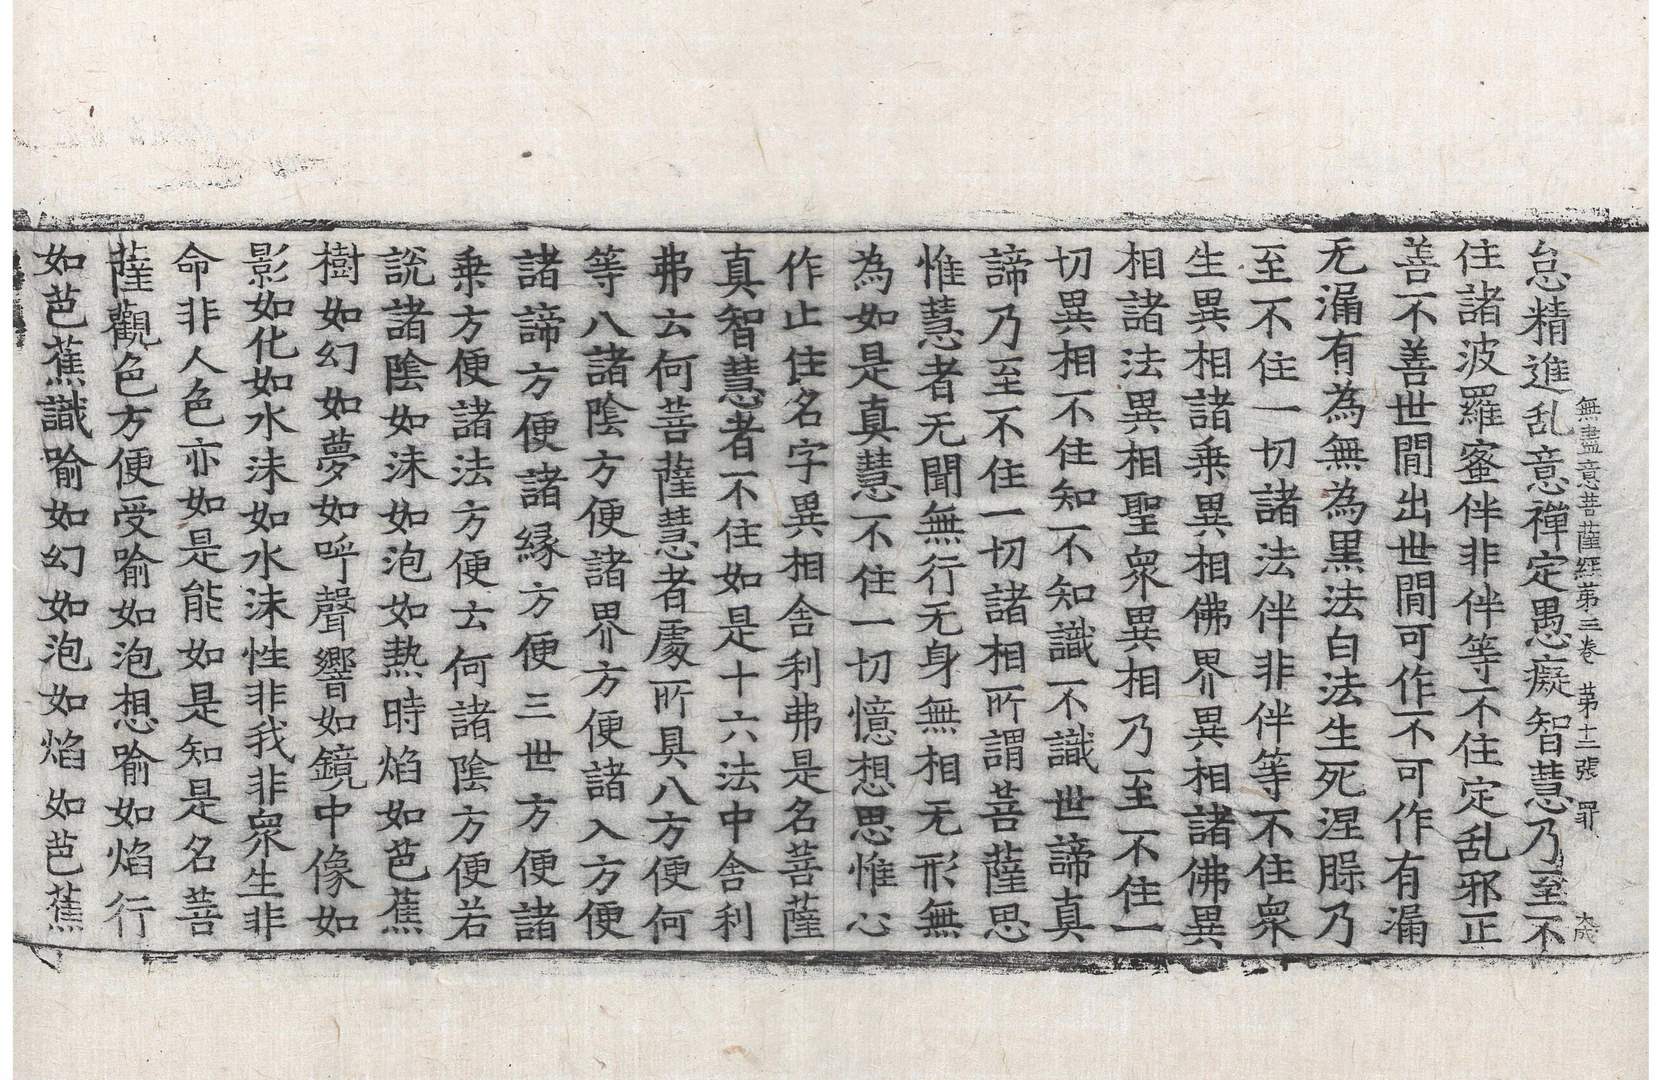 無盡意菩薩經第三卷　第十二張　罪　大成
怠精進乱意禪定愚癡智慧乃至不
住諸波羅蜜伴非伴等不住定乱邪正
善不善世間出世間可作不可作有漏
无漏有為無為黒法白法生死涅脲乃
至不住一切諸法伴非伴等不住衆
生異相諸乗異相佛界異相諸佛異
相諸法異相聖衆異相乃至不住一
切異相不住知不知識不識世諦真
諦乃至不住一切諸相所謂菩薩思
惟慧者无聞無行无身無相无形無
為如是真慧不住一切憶想思惟心
作止住名字異相舍利弗是名菩薩
真智慧者不住如是十六法中舍利
弗云何菩薩慧者處所具八方便何
等八諸陰方便諸界方便諸入方便
諸諦方便諸縁方便三世方便諸
乗方便諸法方便云何諸陰方便若
說諸陰如沫如泡如熱時焰如芭蕉
樹如幻如夢如呼聲響如鏡中像如
影如化如水沫如水沫性非我非衆生非
命非人色亦如是能如是知是名菩
薩觀色方便受喻如泡想喻如焰行
如芭蕉識喻如幻如泡如焰如芭蕉